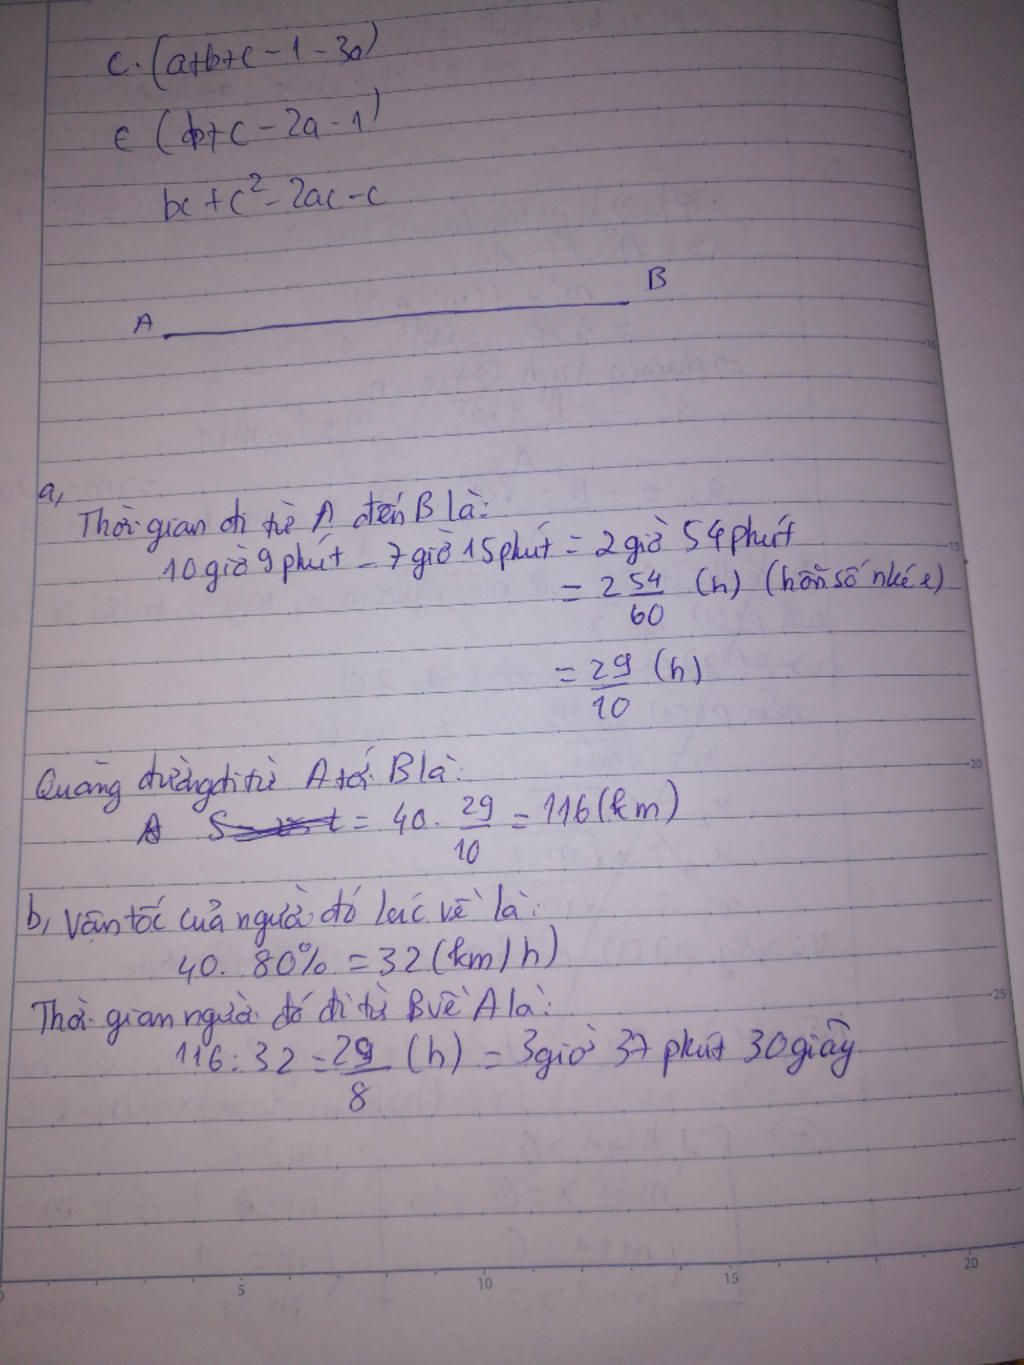 c.(a+b+c-1-3a)
c (b+c-2a-1)
bc+c²-2ac-c
A B
a,
Thời gian đi từ A đến B là:
10 giờ 9 phút - 7 giờ 15 phút = 2 giờ 54 phút
= 2 54/60 (h) (hỗn số nhé e)
= 29/10 (h)
Quãng đường đi từ A tới B là:
= 40. 29/10 = 116 (km)
b, Vận tốc của người đó lúc về là:
40. 80% = 32 (km/h)
Thời gian người đó đi từ B về A là:
116 : 32 = 29/8 (h) = 3 giờ 37 phút 30 giây
5 10 15 20
10
15
20
25